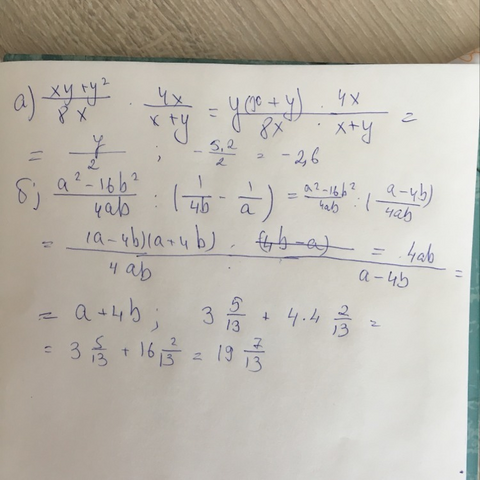 а) (xy+y²)/(8x) · 4x/(x+y) = y(x+y)/(8x) · 4x/(x+y) =
= y/2 ; -5,2/2 = -2,6
б) (a²-16b²)/(4ab) : (1/(4b) - 1/a) = (a²-16b²)/(4ab) : ((a-4b)/(4ab))
= (a-4b)(a+4b)/(4ab) · 4ab/(a-4b) =
= a+4b ; 3 5/13 + 4·4 2/13 =
= 3 5/13 + 16 2/13 = 19 7/13